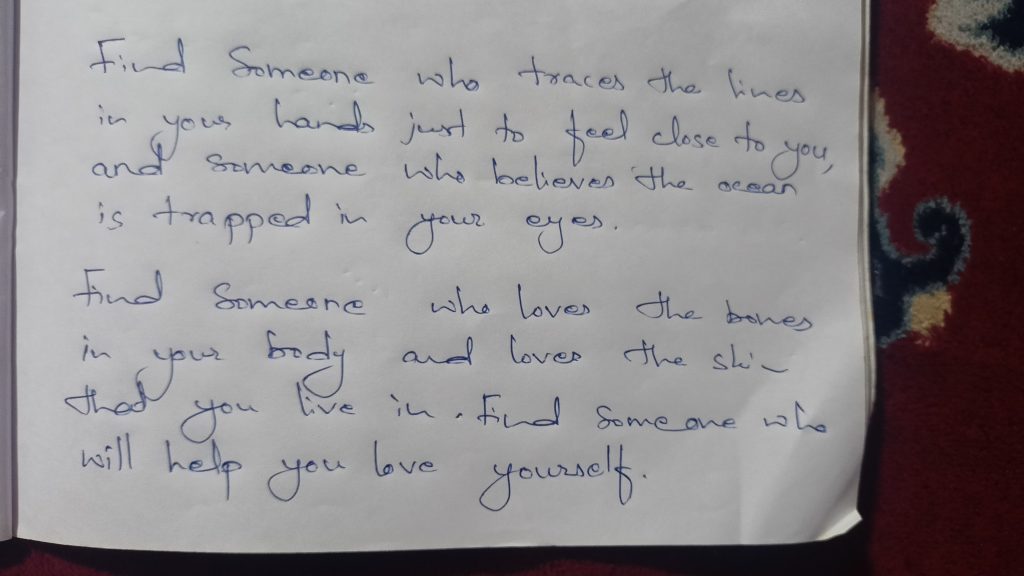 Find Someone who traces the lines
in your hands just to feel close to you,
and someone who believes the ocean
is trapped in your eyes.
Find Someone who loves the bones
in your body and loves the skin
that you live in. Find Someone who
will help you love yourself.